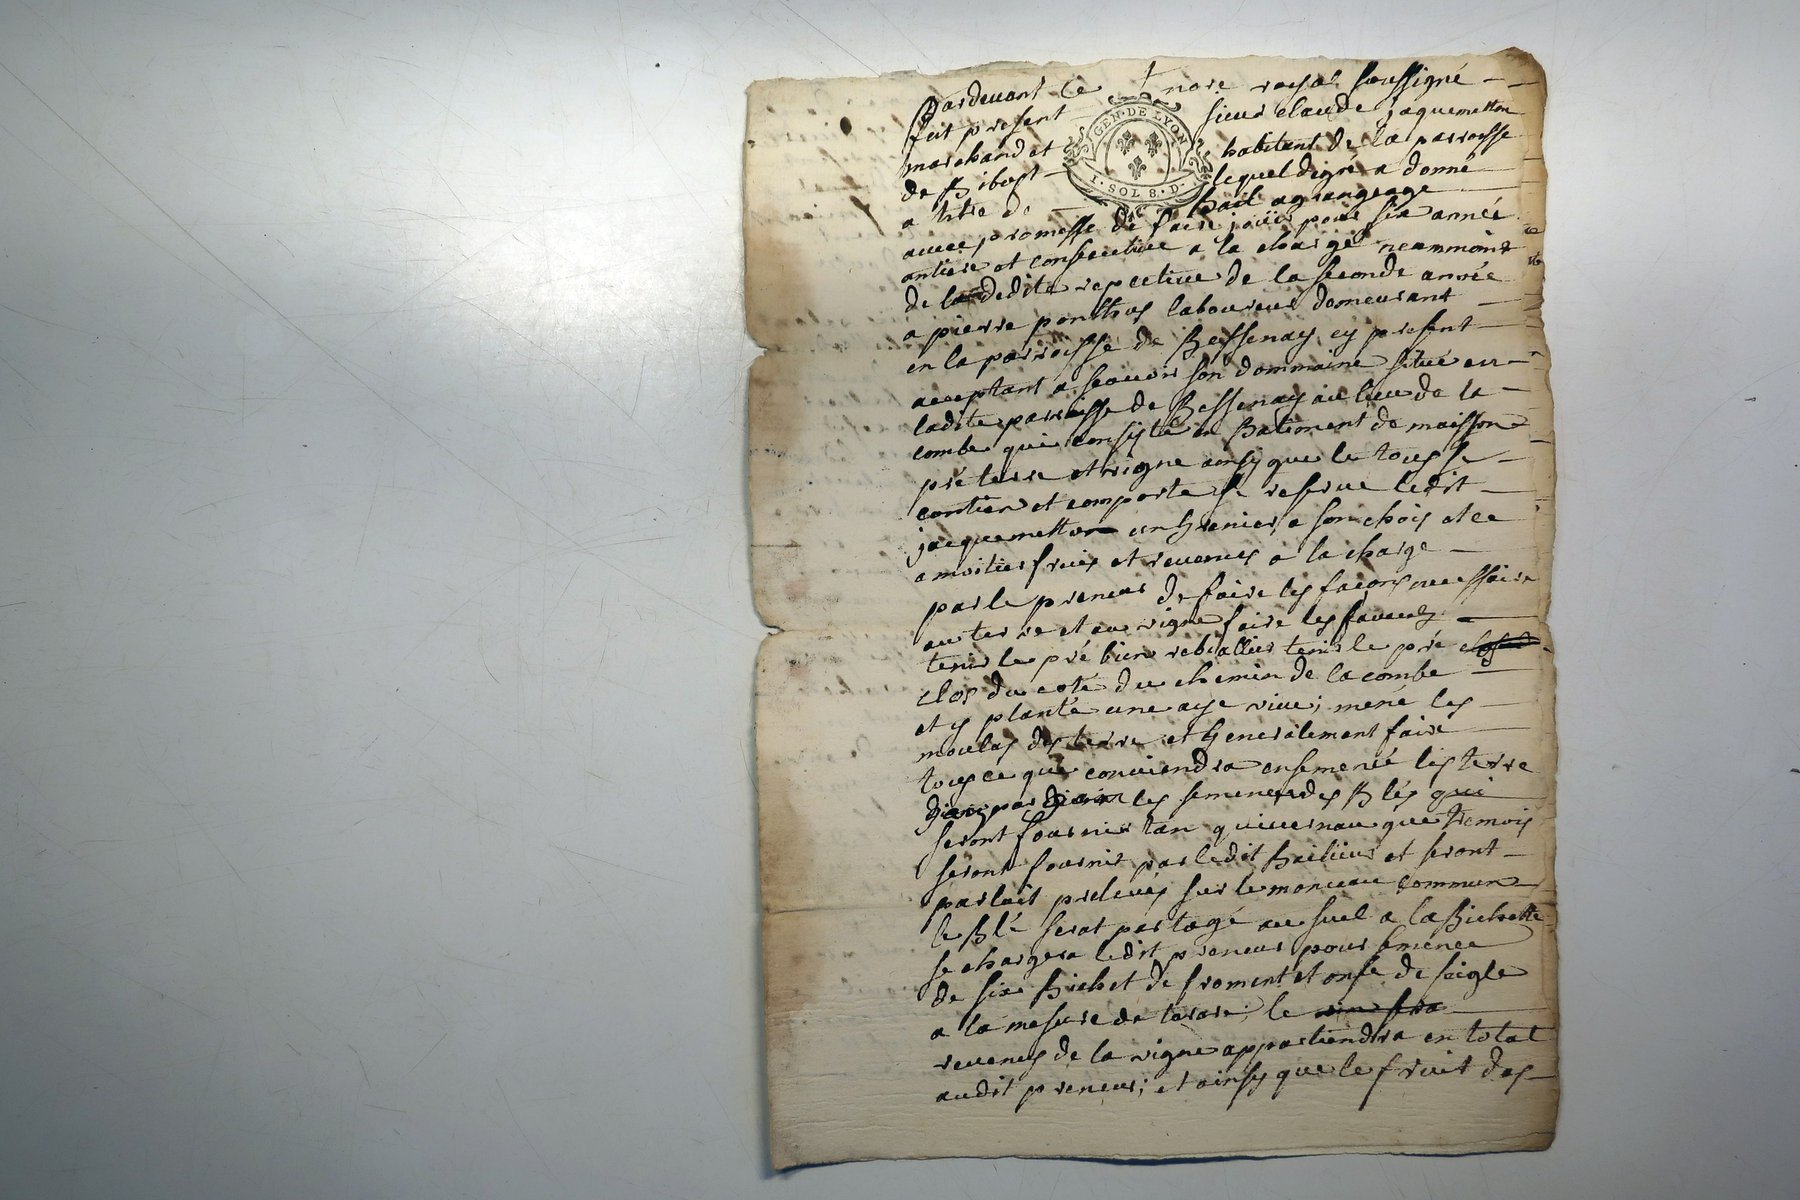 Pardevant le nore royal soussigné
fut present sieur claude jaquemetton
marchand et habitant de la parroisse
de Ribost lequel digré a donné
a titre de bail agrangeage
GEN. DE LYON
I. SOL 8. D.
avec promesse de faire jouir pour six année
antiere et consecutive a la charge neammoins
de la dedite respective de la seconde année
a pierre ponthus laboureur demeurant
en la parroisse de Bessenay cy present
acceptant a scavoir son dommaine situé en
ladite parroisse de Bessenay au lieu de la
combe qui consiste en Batiment de maison
pré terre et vigne ainsy que le tous se
contien et comporte se reserve ledit
jacquemetton un Grenier a son choix et ce
a moitier fruis et revenus a la charge
par le preneur de faire les façons necessaire
au terre et au vigne faire les
tenir le pré bien tenir le pré
clos du coté du chemin de la combe
et y planté une aye vive, mené les
des terre et Generalement faire
tous ce qui conviendra ensemencé les terre
les semences des Blés qui
seront fournir tan quivernau que tremois
seront fournir par ledit Bailleur et seront
par luit prelevés sur le monceau commun
le Blé serat partagé au suel a la Bichette
se chargera ledit preneur pour semence
de six Bichet de froment et onse de seigle
a la mesure de tarare, le
revenus de la vigne appartiendra en total
audit preneur; et ainsy que le fruit des